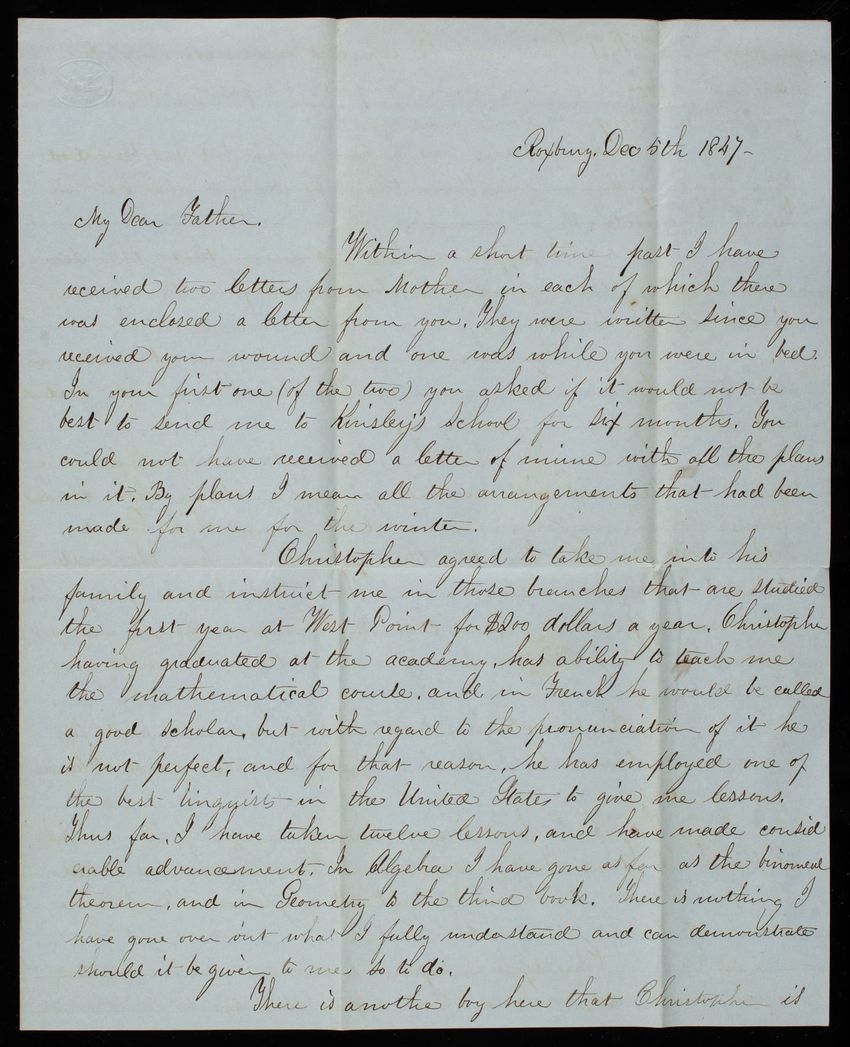 Roxbury. Dec 5th 1847-
My Dear Father.
Within a short time past I have
received two letters from Mother in each of which there
was enclosed a letter from you. They were written since you
received your wound and one was while you were in bed.
In your first one (of the two) you asked if it would not be
best to send me to Kinsley's School for six months. You
could not have received a letter of mine with all the plans
in it. By plans I mean all the arrangements that had been
made for me for the winter.
Christopher agreed to take me into his
family and instruct me in those branches that are studied
the first year at West Point for $200 dollars a year. Christopher
having graduated at the academy, has ability to teach me
the mathematical course. and in French he would be called
a good scholar, but with regard to the pronunciation of it he
is not perfect, and for that reason, he has employed one of
the best linguists in the United States to give me lessons.
Thus far, I have taken twelve lessons, and have made consid
erable advancement. In Algebra I have gone as far as the binomial
theorem, and in Geometry to the third book. There is nothing I
have gone over but what I fully understand and can demonstrate
should it be given to me so to do.
There is anothe boy here that Christopher is